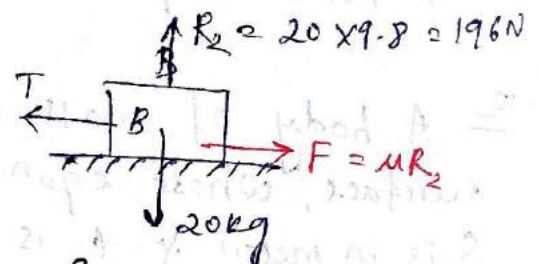 R₂ = 20 × 9.8 = 196N
T
B
F = μR₂
20kg